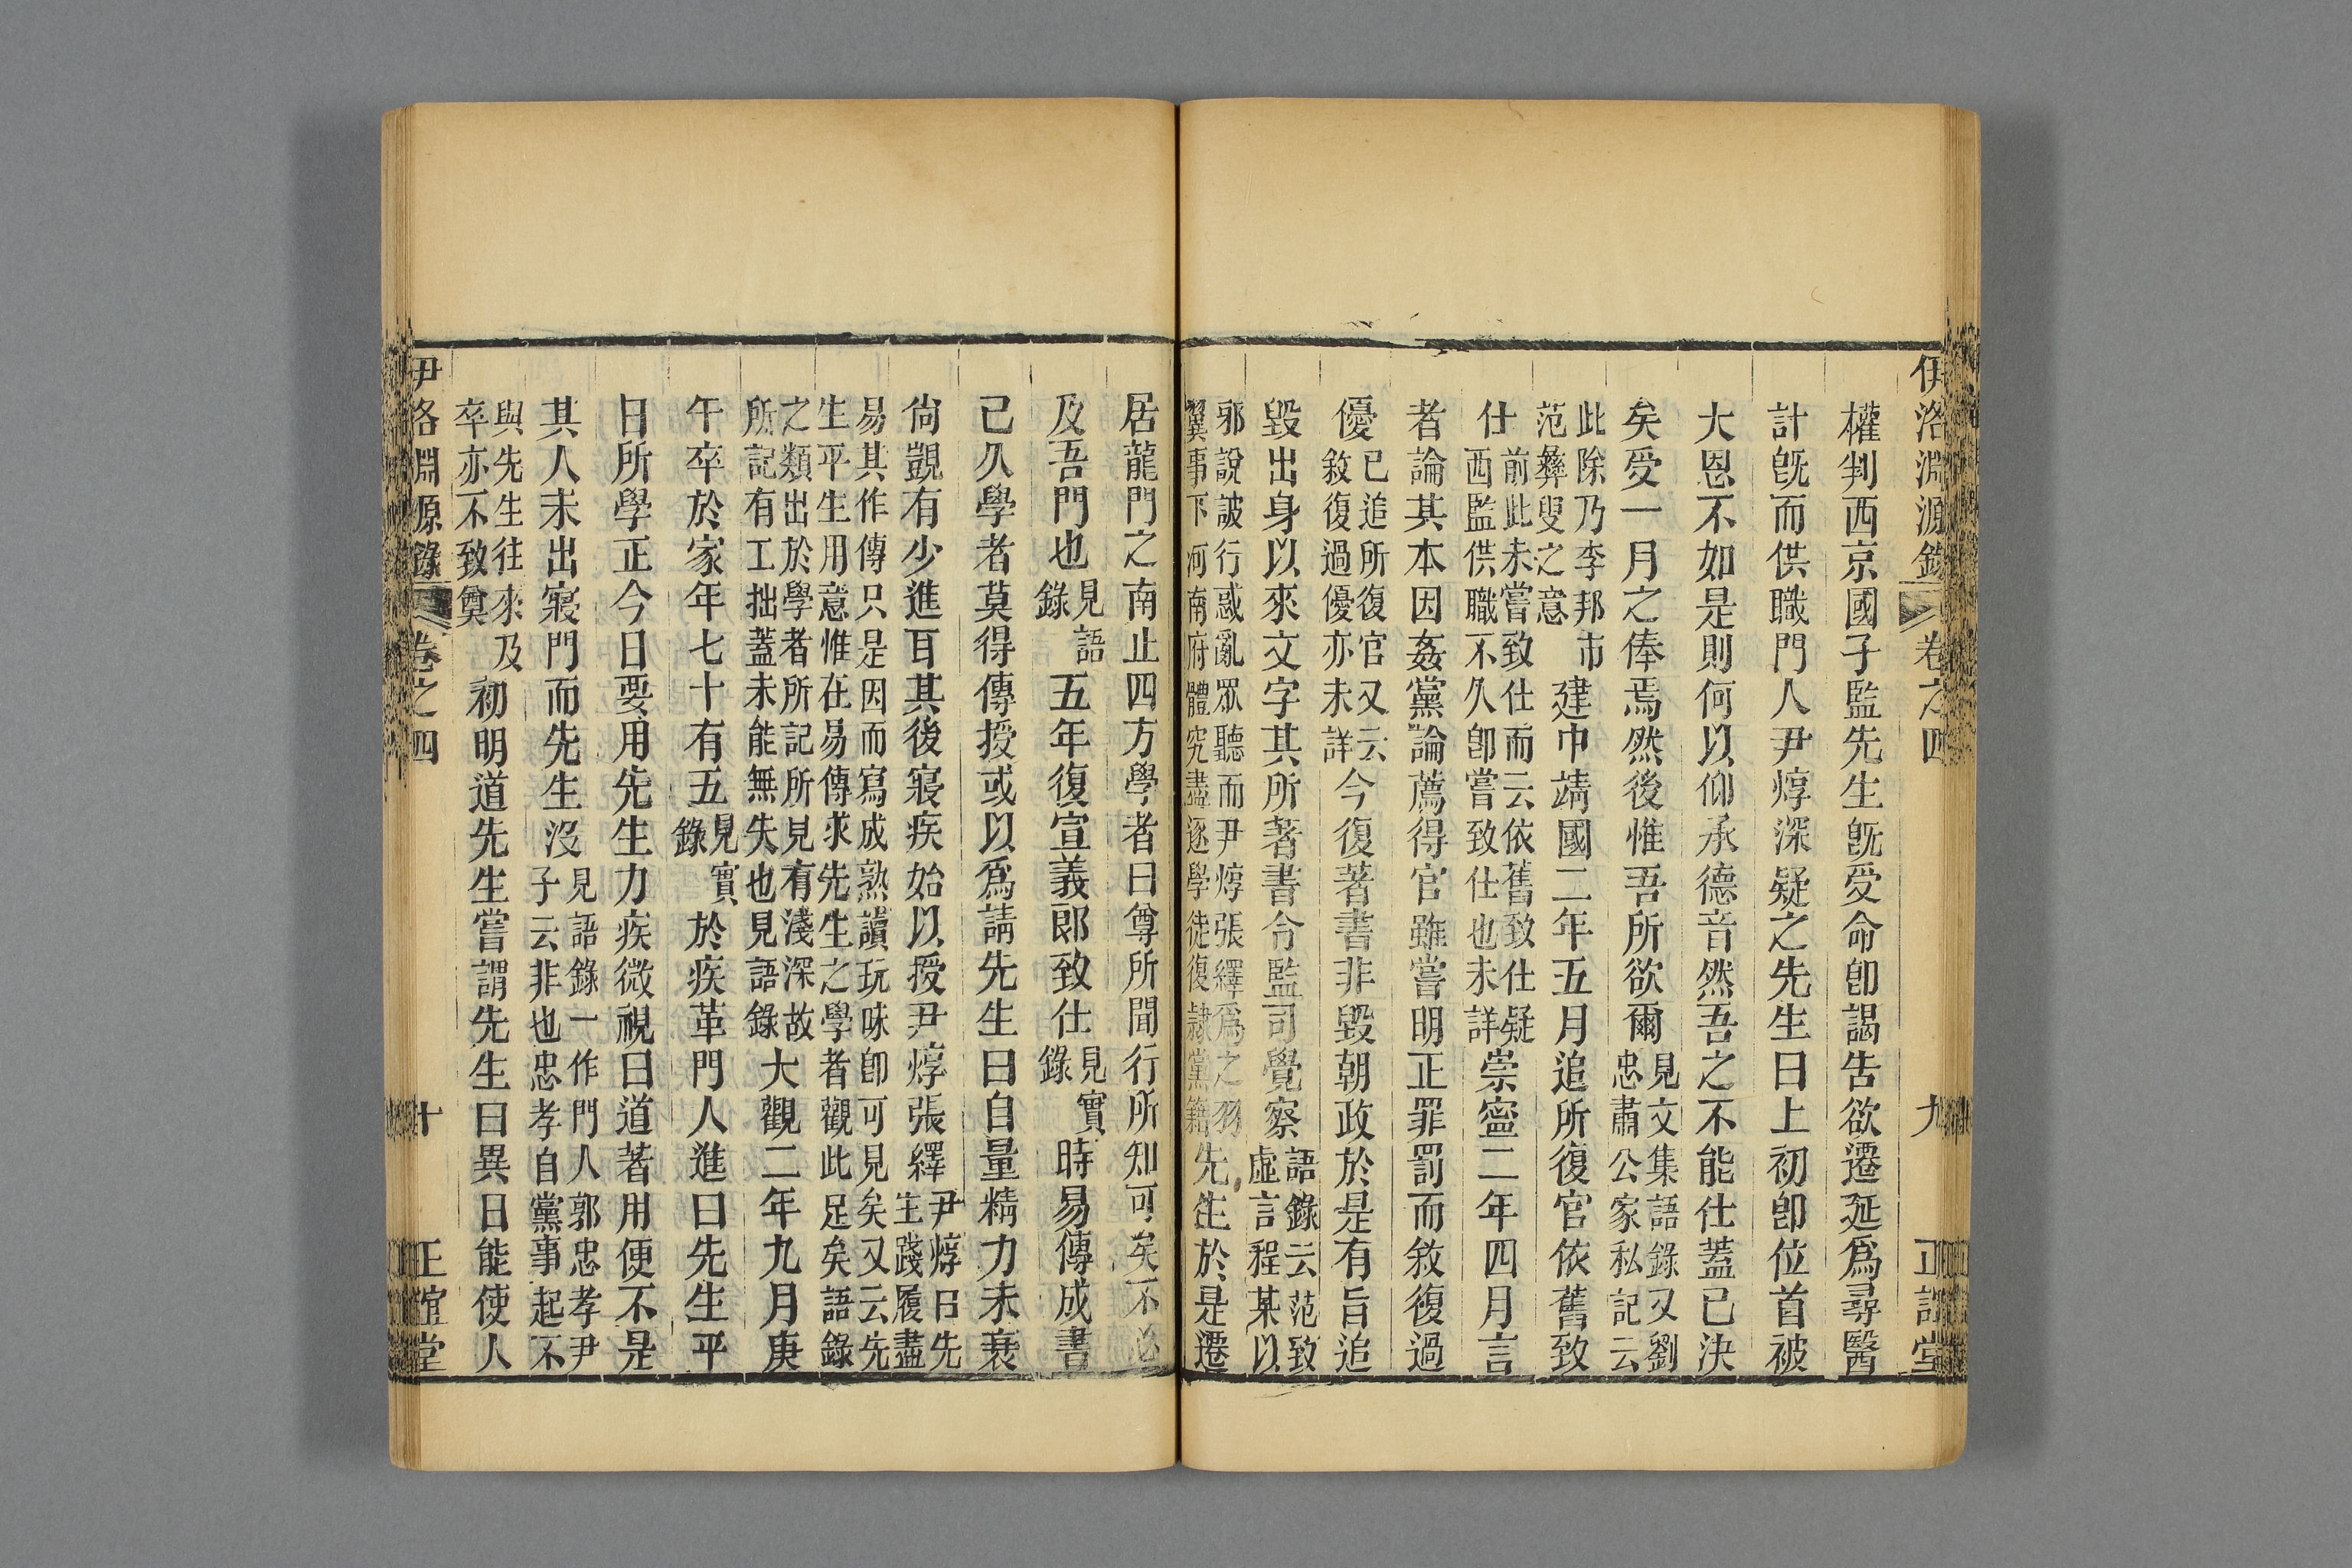 伊洛淵源錄 卷之四 九 正誼堂
權判西京國子監先生旣受命卽謁告欲遷延爲尋醫
計旣而供職門人尹焞深疑之先生曰上初卽位首被
大恩不如是則何以仰承德音然吾之不能仕蓋已決
矣受一月之俸焉然後惟吾所欲爾見文集語錄又劉忠肅公家私記云
此除乃李邦巿范彝叟之意建中靖國二年五月追所復官依舊致
仕前此未嘗致仕而云依舊致仕疑西監供職不久卽嘗致仕也未詳崇寧二年四月言
者論其本因姦黨論薦得官雖嘗明正罪罰而敘復過
優已追所復官又云敘復過優亦未詳今復著書非毀朝政於是有旨追
毀出身以來文字其所著書令監司覺察語錄云范致虛言程某以
邪說詖行惑亂眾聽而尹焞張繹爲之羽翼事下河南府體究盡逐學徒復隸黨籍先生於是遷
居龍門之南止四方學者曰尊所聞行所知可矣不必
及吾門也見語錄五年復宣義郎致仕見實錄時易傳成書
已久學者莫得傳授或以爲請先生曰自量精力未衰
尙覬有少進耳其後寢疾始以授尹焞張繹尹焞曰先生踐履盡
易其作傳只是因而寫成熟讀玩味卽可見矣又云先生平生用意惟在易傳求先生之學者觀此足矣語錄
之類出於學者所記所見有淺深故所記有工拙蓋未能無失也見語錄大觀二年九月庚
午卒於家年七十有五見實錄於疾革門人進曰先生平
日所學正今日要用先生力疾微視曰道著用便不是
其人未出寢門而先生沒見語錄一作門人郭忠孝尹子云非也忠孝自黨事起不
與先生往來及卒亦不致奠初明道先生嘗謂先生曰異日能使人
伊洛淵源錄 卷之四 十 正誼堂